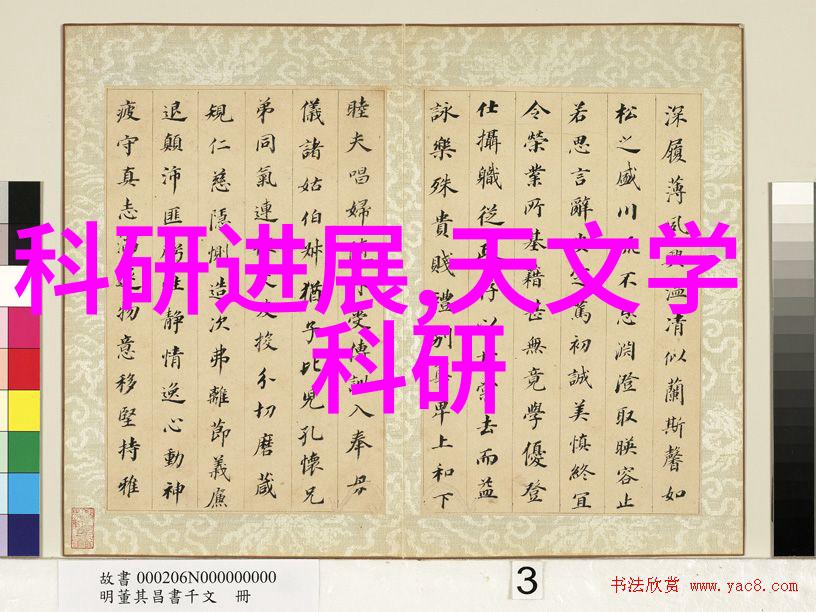 科研进展,天文学
科研
深履薄夙興溫清似蘭斯馨如
松之盛川流不息淵澄取暎容止
若思言辭安定篤初誠美慎終宜
令榮業所基籍甚無竟學優登
仕攝職從政存以甘棠去而益
詠樂殊貴賤禮別尊卑上和下
睦夫唱婦隨外受傅訓入奉母
儀諸姑伯叔猶子比兒孔懷兄
弟同氣連枝交友投分切磨箴
規仁慈隱惻造次弗離節義廉
退顛沛匪虧性靜情逸心動神
疲守真志滿逐物意移堅持雅
故書 000206N000000000
明董其昌書千文 冊
3
书法欣赏 www.yac8.com